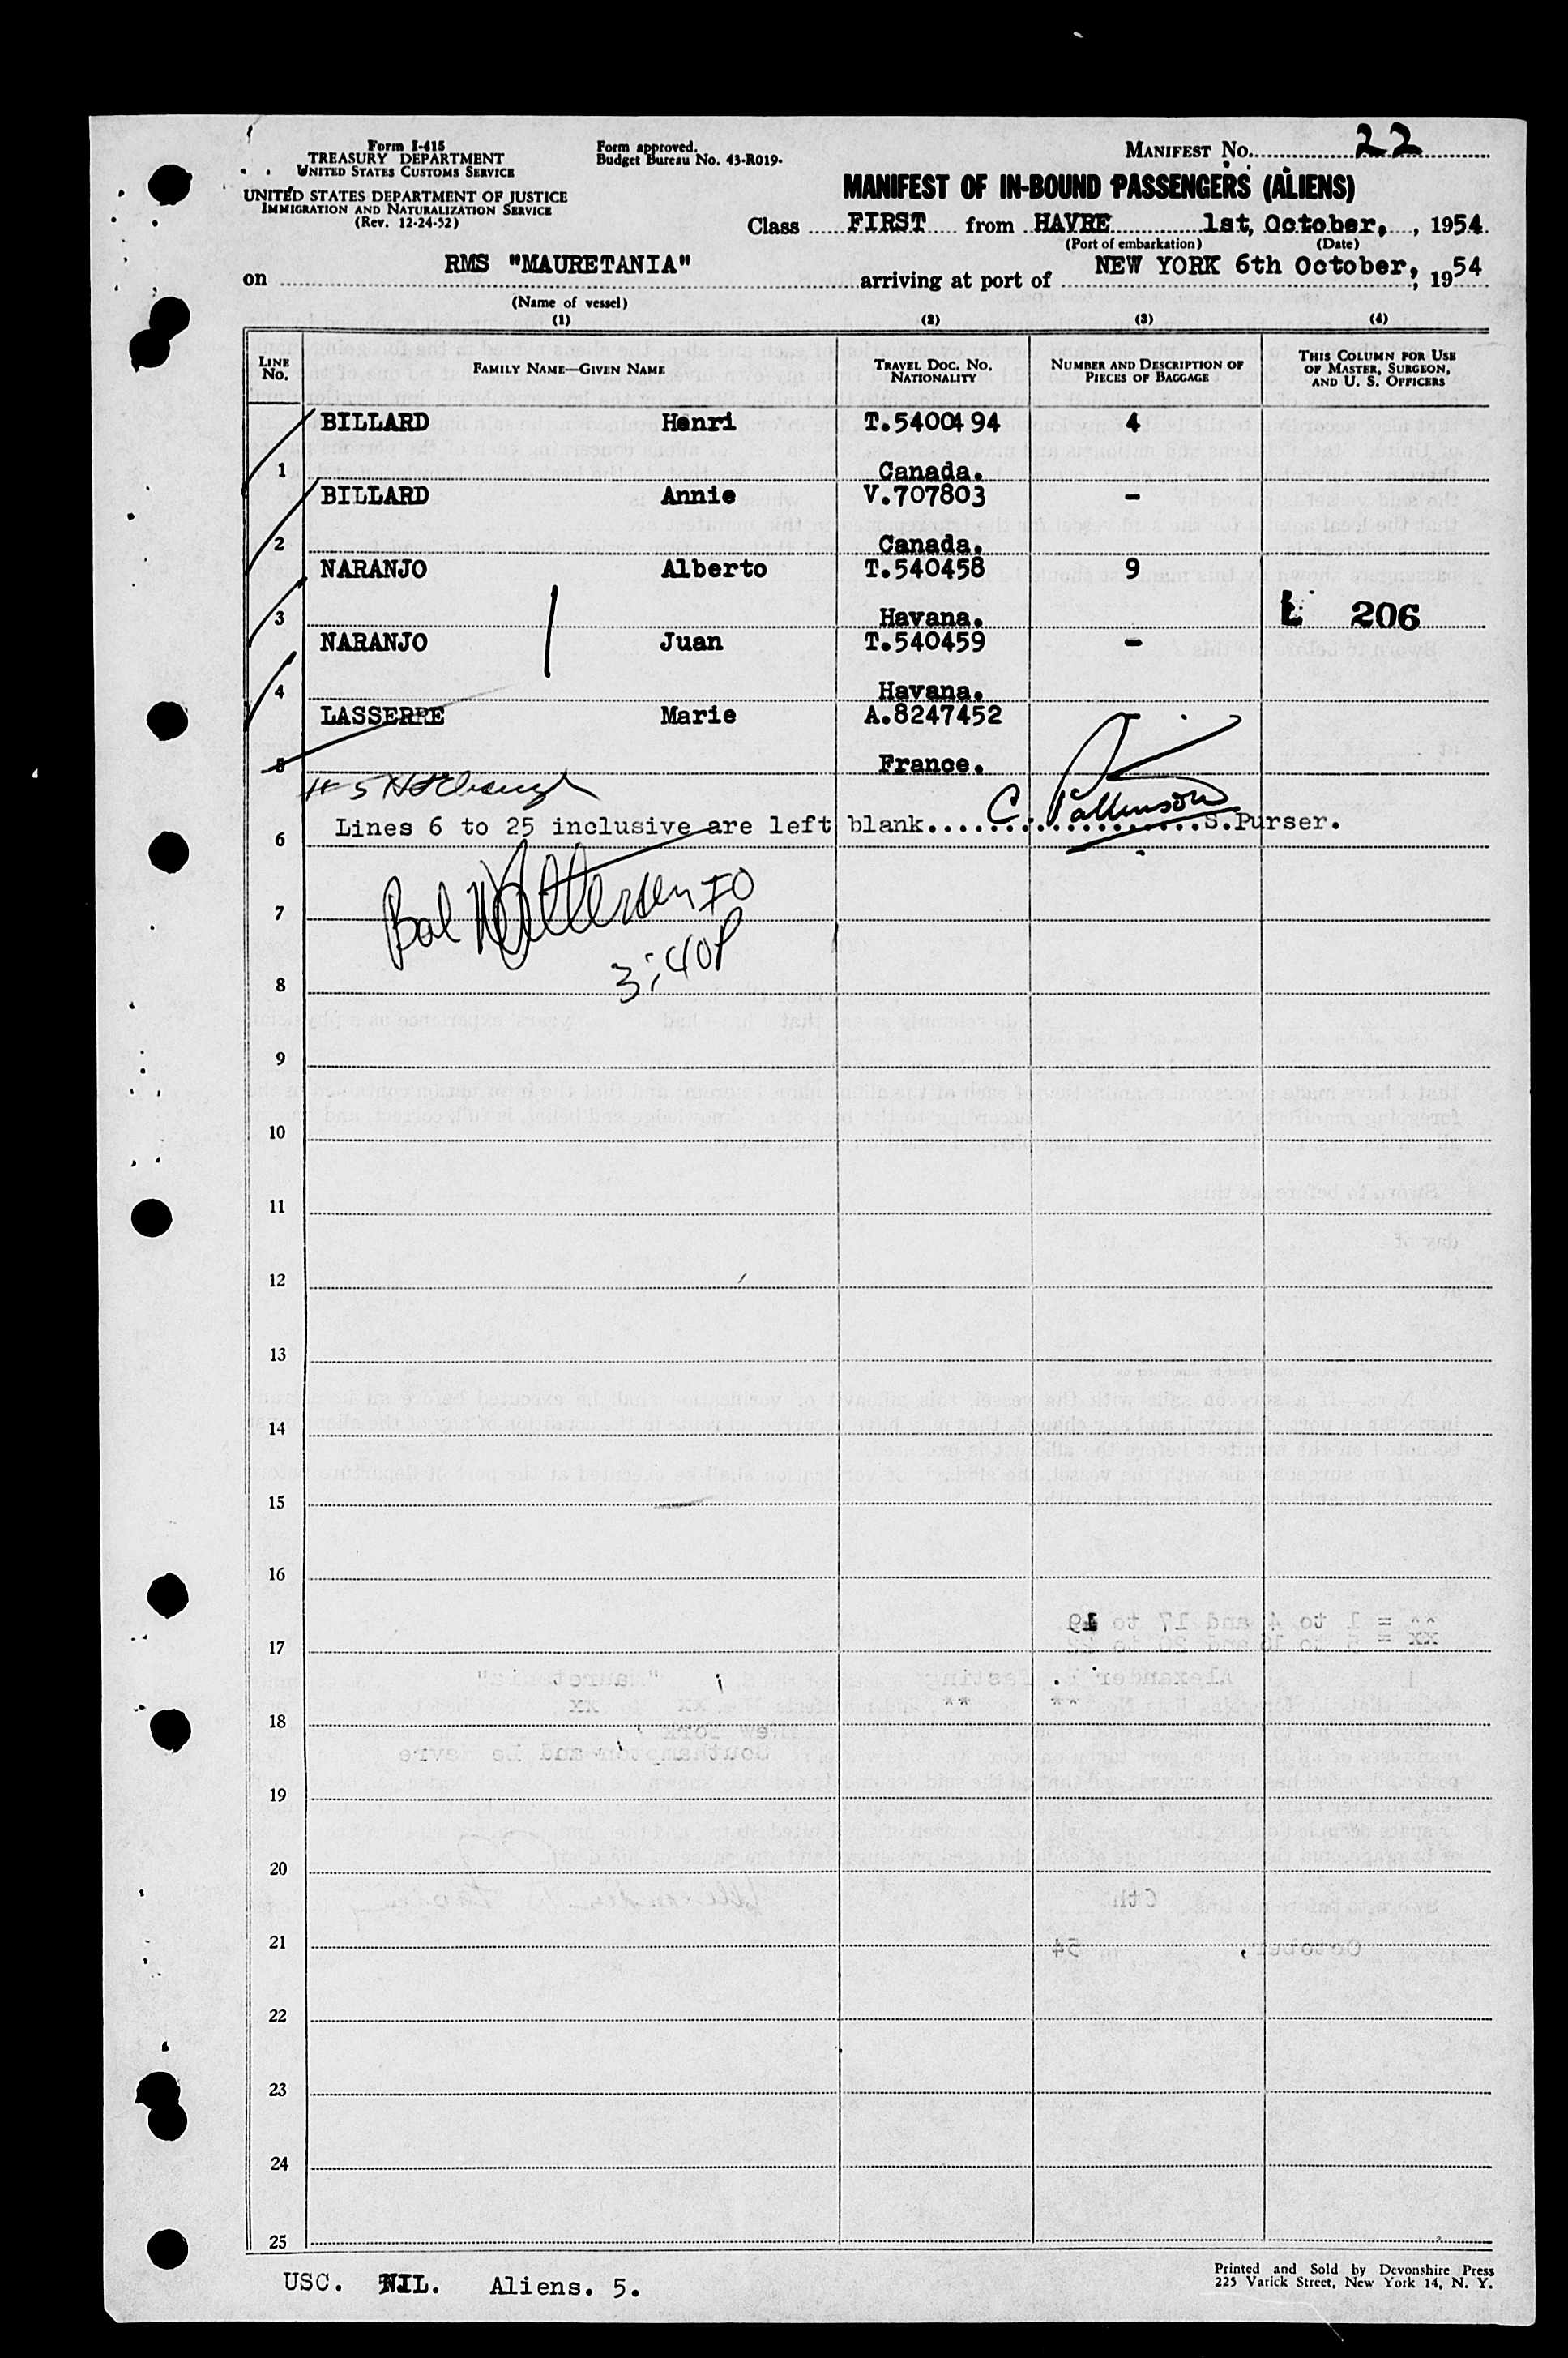 Form I-415
TREASURY DEPARTMENT
UNITED STATES CUSTOMS SERVICE
UNITED STATES DEPARTMENT OF JUSTICE
IMMIGRATION AND NATURALIZATION SERVICE
(Rev. 12-24-52)
Form approved.
Budget Bureau No. 43-R019-
MANIFEST No. 22
MANIFEST OF IN-BOUND PASSENGERS (ALIENS)
Class FIRST from HAVRE 1st, October, , 1954.
(Port of embarkation) (Date)
on RMS "MAURETANIA" arriving at port of NEW YORK 6th October, , 1954
(Name of vessel)
(1) (2) (3) (4)
LINE No. FAMILY NAME—GIVEN NAME TRAVEL DOC. NO. NATIONALITY NUMBER AND DESCRIPTION OF PIECES OF BAGGAGE THIS COLUMN FOR USE OF MASTER, SURGEON, AND U. S. OFFICERS
BILLARD Henri T.5400494 4
1 Canada.
BILLARD Annie V.707803 -
2 Canada.
NARANJO Alberto T.540458 9
3 Havana. 206
NARANJO Juan T.540459 -
4 Havana.
LASSERRE Marie A.8247452
5 France.
# 5
6 Lines 6 to 25 inclusive are left blank.... C. .........S.Purser.
7
3:40P
8
9
10
11
12
13
14
15
16
17
18
19
20
21
22
23
24
25
USC. NIL. Aliens. 5.
Printed and Sold by Devonshire Press
225 Varick Street, New York 14, N. Y.